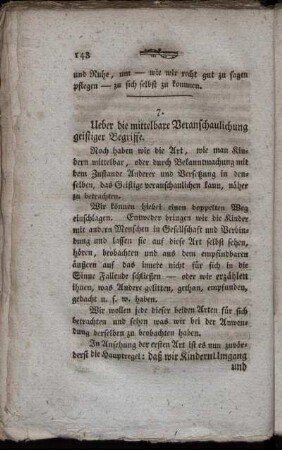 148
und Ruhe, um — wie wir recht gut zu sagen
pflegen — zu sich selbst zu kommen.
7.
Ueber die mittelbare Veranschaulichung
geistiger Begriffe.
Noch haben wir die Art, wie man Kin-
dern mittelbar, oder durch Bekanntmachung mit
dem Zustande Anderer und Versetzung in den-
selben, das Geistige veranschaulichen kann, näher
zu betrachten.
Wir können hiebei einen doppelten Weg
einschlagen. Entweder bringen wir die Kinder
mit andern Menschen in Gesellschaft und Verbin-
dung und lassen sie auf diese Art selbst sehen,
hören, beobachten und aus dem empfindbaren
äußern auf das innere nicht für sich in die
Sinne Fallende schließen — oder wir erzählen
ihnen, was Andere gelitten, gethan, empfunden,
gedacht u. s. w. haben.
Wir wollen jede dieser beiden Arten für sich
betrachten und sehen was wir bei der Anwen-
dung derselben zu beobachten haben.
In Ansehung der ersten Art ist es nun zuvör-
derst die Hauptregel: daß wir Kindern Umgang
und